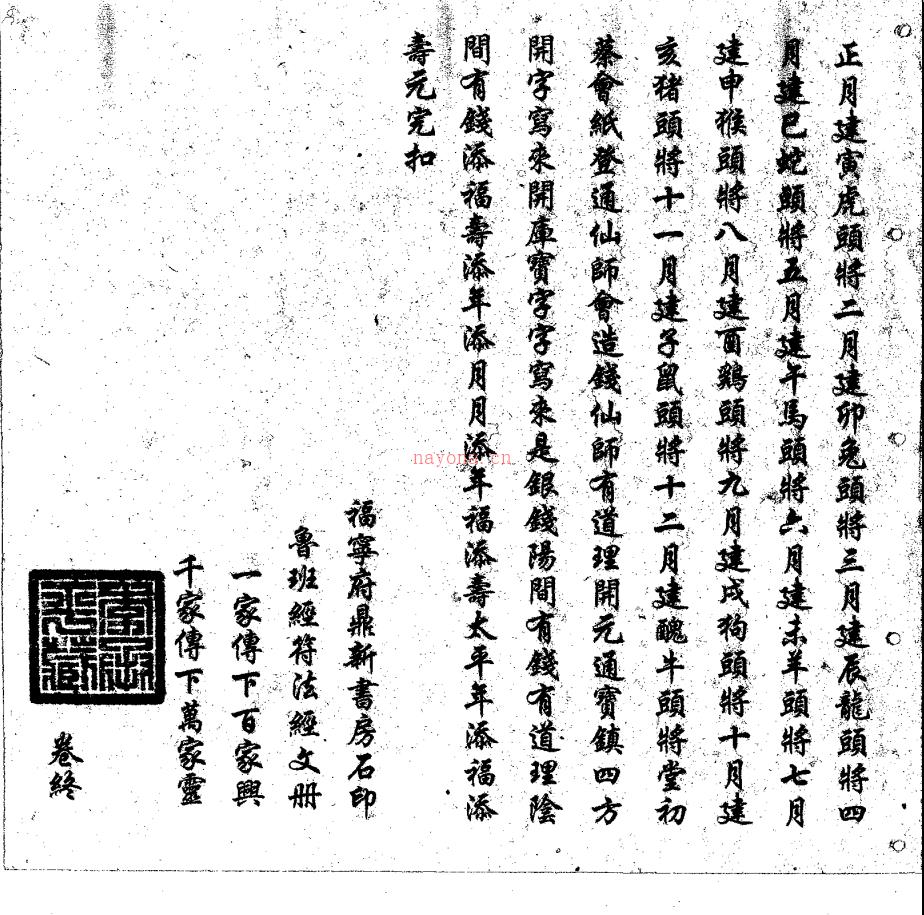 正月建寅虎頭將二月建卯兔頭將三月建辰龍頭將四
月建巳蛇頭將五月建午馬頭將六月建未羊頭將七月
建申猴頭將八月建酉鷄頭將九月建戌狗頭將十月建
亥猪頭將十一月建子鼠頭將十二月建醜牛頭將堂初
蔡會紙登通仙師會造錢仙師有道理開元通寶鎮四方
開字寫來開庫寶字字寫來是銀錢陽間有錢有道理陰
間有錢添福壽添年添月月添年福添壽太平年添福添
壽元完扣
福寧府鼎新書房石印
魯班經符法經文册
一家傳下百家興
千家傳下萬家靈
卷終
nayona.cn